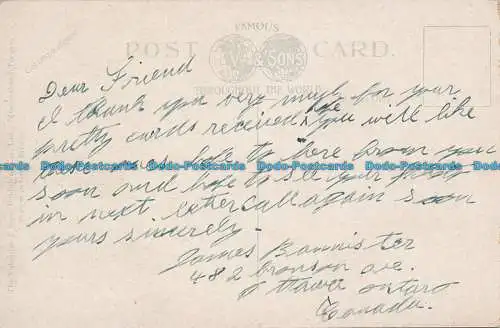 FAMOUS
POST CARD.
& SONS
THROUGHOUT THE WORLD
Dear Friend
I thank you very much for your
pretty cards received, hope you will like
to here from you
soon and hope to see your
in next letter call again soon
yours sincerely -
James Bannister
482 bronson ave.
ottawa ontaro
Canada.
Postcards Postcards Postcards Postcards Postcards